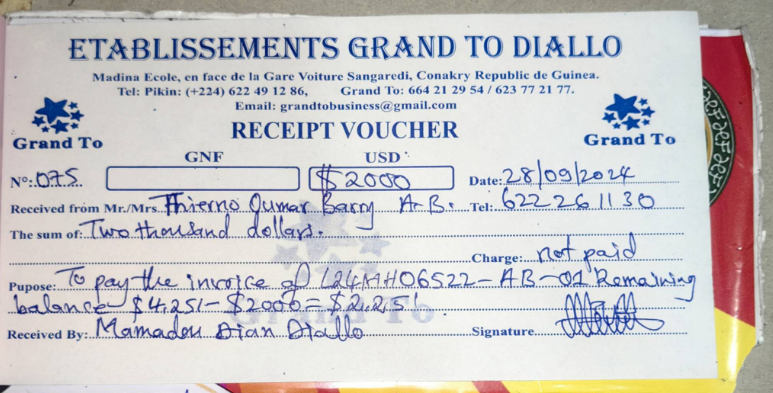 ETABLISSEMENTS GRAND TO DIALLO
Madina Ecole, en face de la Gare Voiture Sangaredi, Conakry Republic de Guinea.
Tel: Pikin: (+224) 622 49 12 86, Grand To: 664 21 29 54 / 623 77 21 77.
Email: grandtobusiness@gmail.com
Grand To RECEIPT VOUCHER Grand To
GNF USD
N°: 075 $2000 Date: 28/09/2024
Received from Mr./Mrs. Thierno Oumar Barry A-B. Tel: 622 26 11 30
The sum of: Two thousand dollars.
Charge: not paid
Pupose: To pay the invoice of L24MH06522-AB-01 Remaining
balance $4,251-$2000=$2,251
Received By: Mamadou Dian Diallo Signature